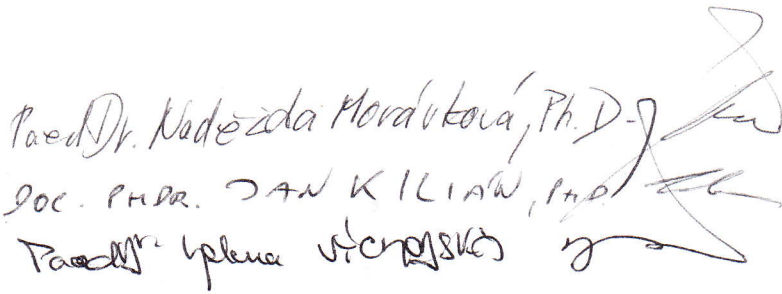 PaedDr. Naděžda Morávková, Ph.D.
DOC. PHDR. JAN KILIÁN, PHD.
PaedDr. Helena